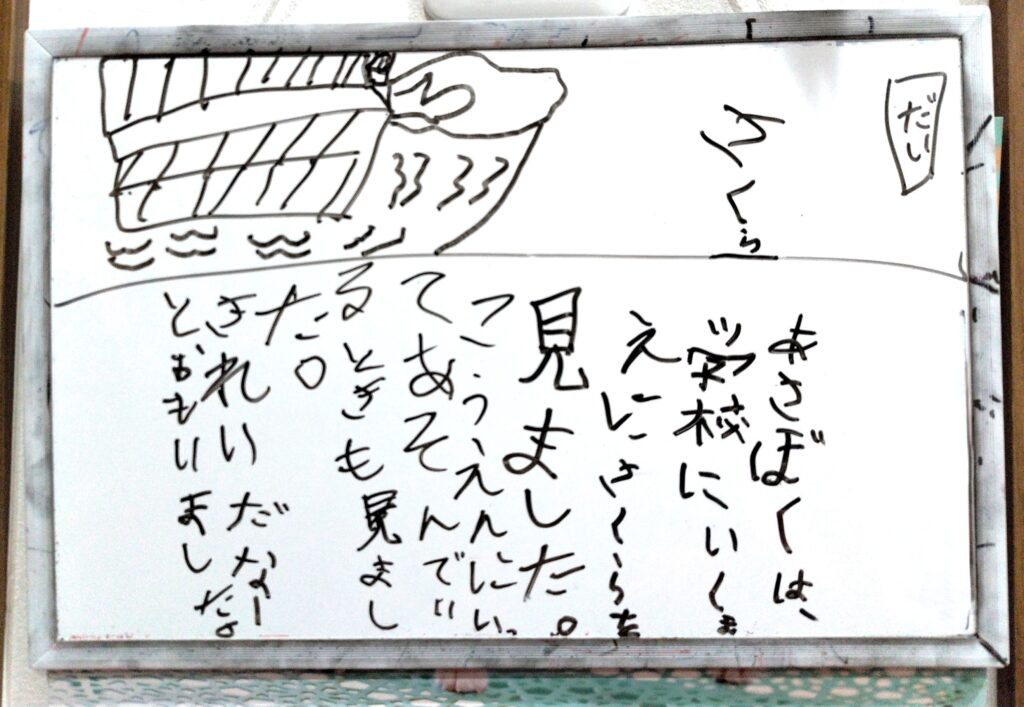 だい
さくら
あさぼくは、
学校にいくま
えにさくらを
見ました。
こうえんにいっ
てあそんで
るときも見まし
た。
きれいだなー
とおもいました。